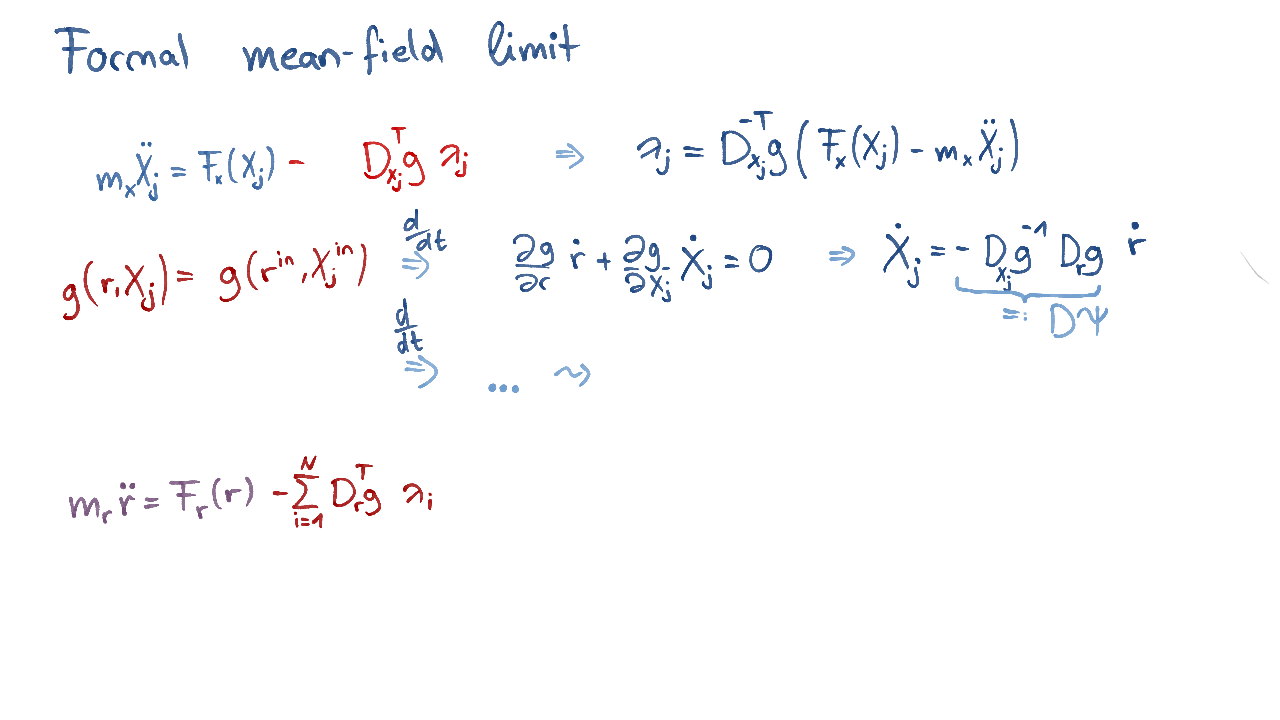 Formal mean-field limit
mₓẌⱼ = Fₓ(Xⱼ) − D_{Xⱼ}^T g λⱼ ⇒ λⱼ = D_{Xⱼ}^{-T} g (Fₓ(Xⱼ) − mₓẌⱼ)
g(r, Xⱼ) = g(r^{in}, Xⱼ^{in}) d/dt ⇒ ∂g/∂r ṙ + ∂g/∂Xⱼ Ẋⱼ = 0 ⇒ Ẋⱼ = − D_{Xⱼ} g^{-1} D_r g ṙ
=: DΨ
d/dt ⇒ ... ⇝
m_r r̈ = F_r(r) − ∑_{i=1}^{N} D_r^T g λᵢ